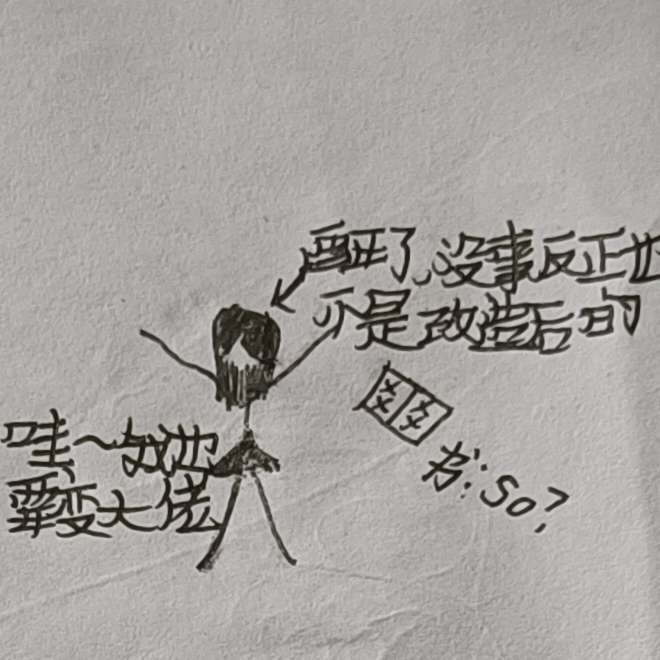 画歪了,没事反正也
不是改造后的
哇~我也
要变大佬
书:so?